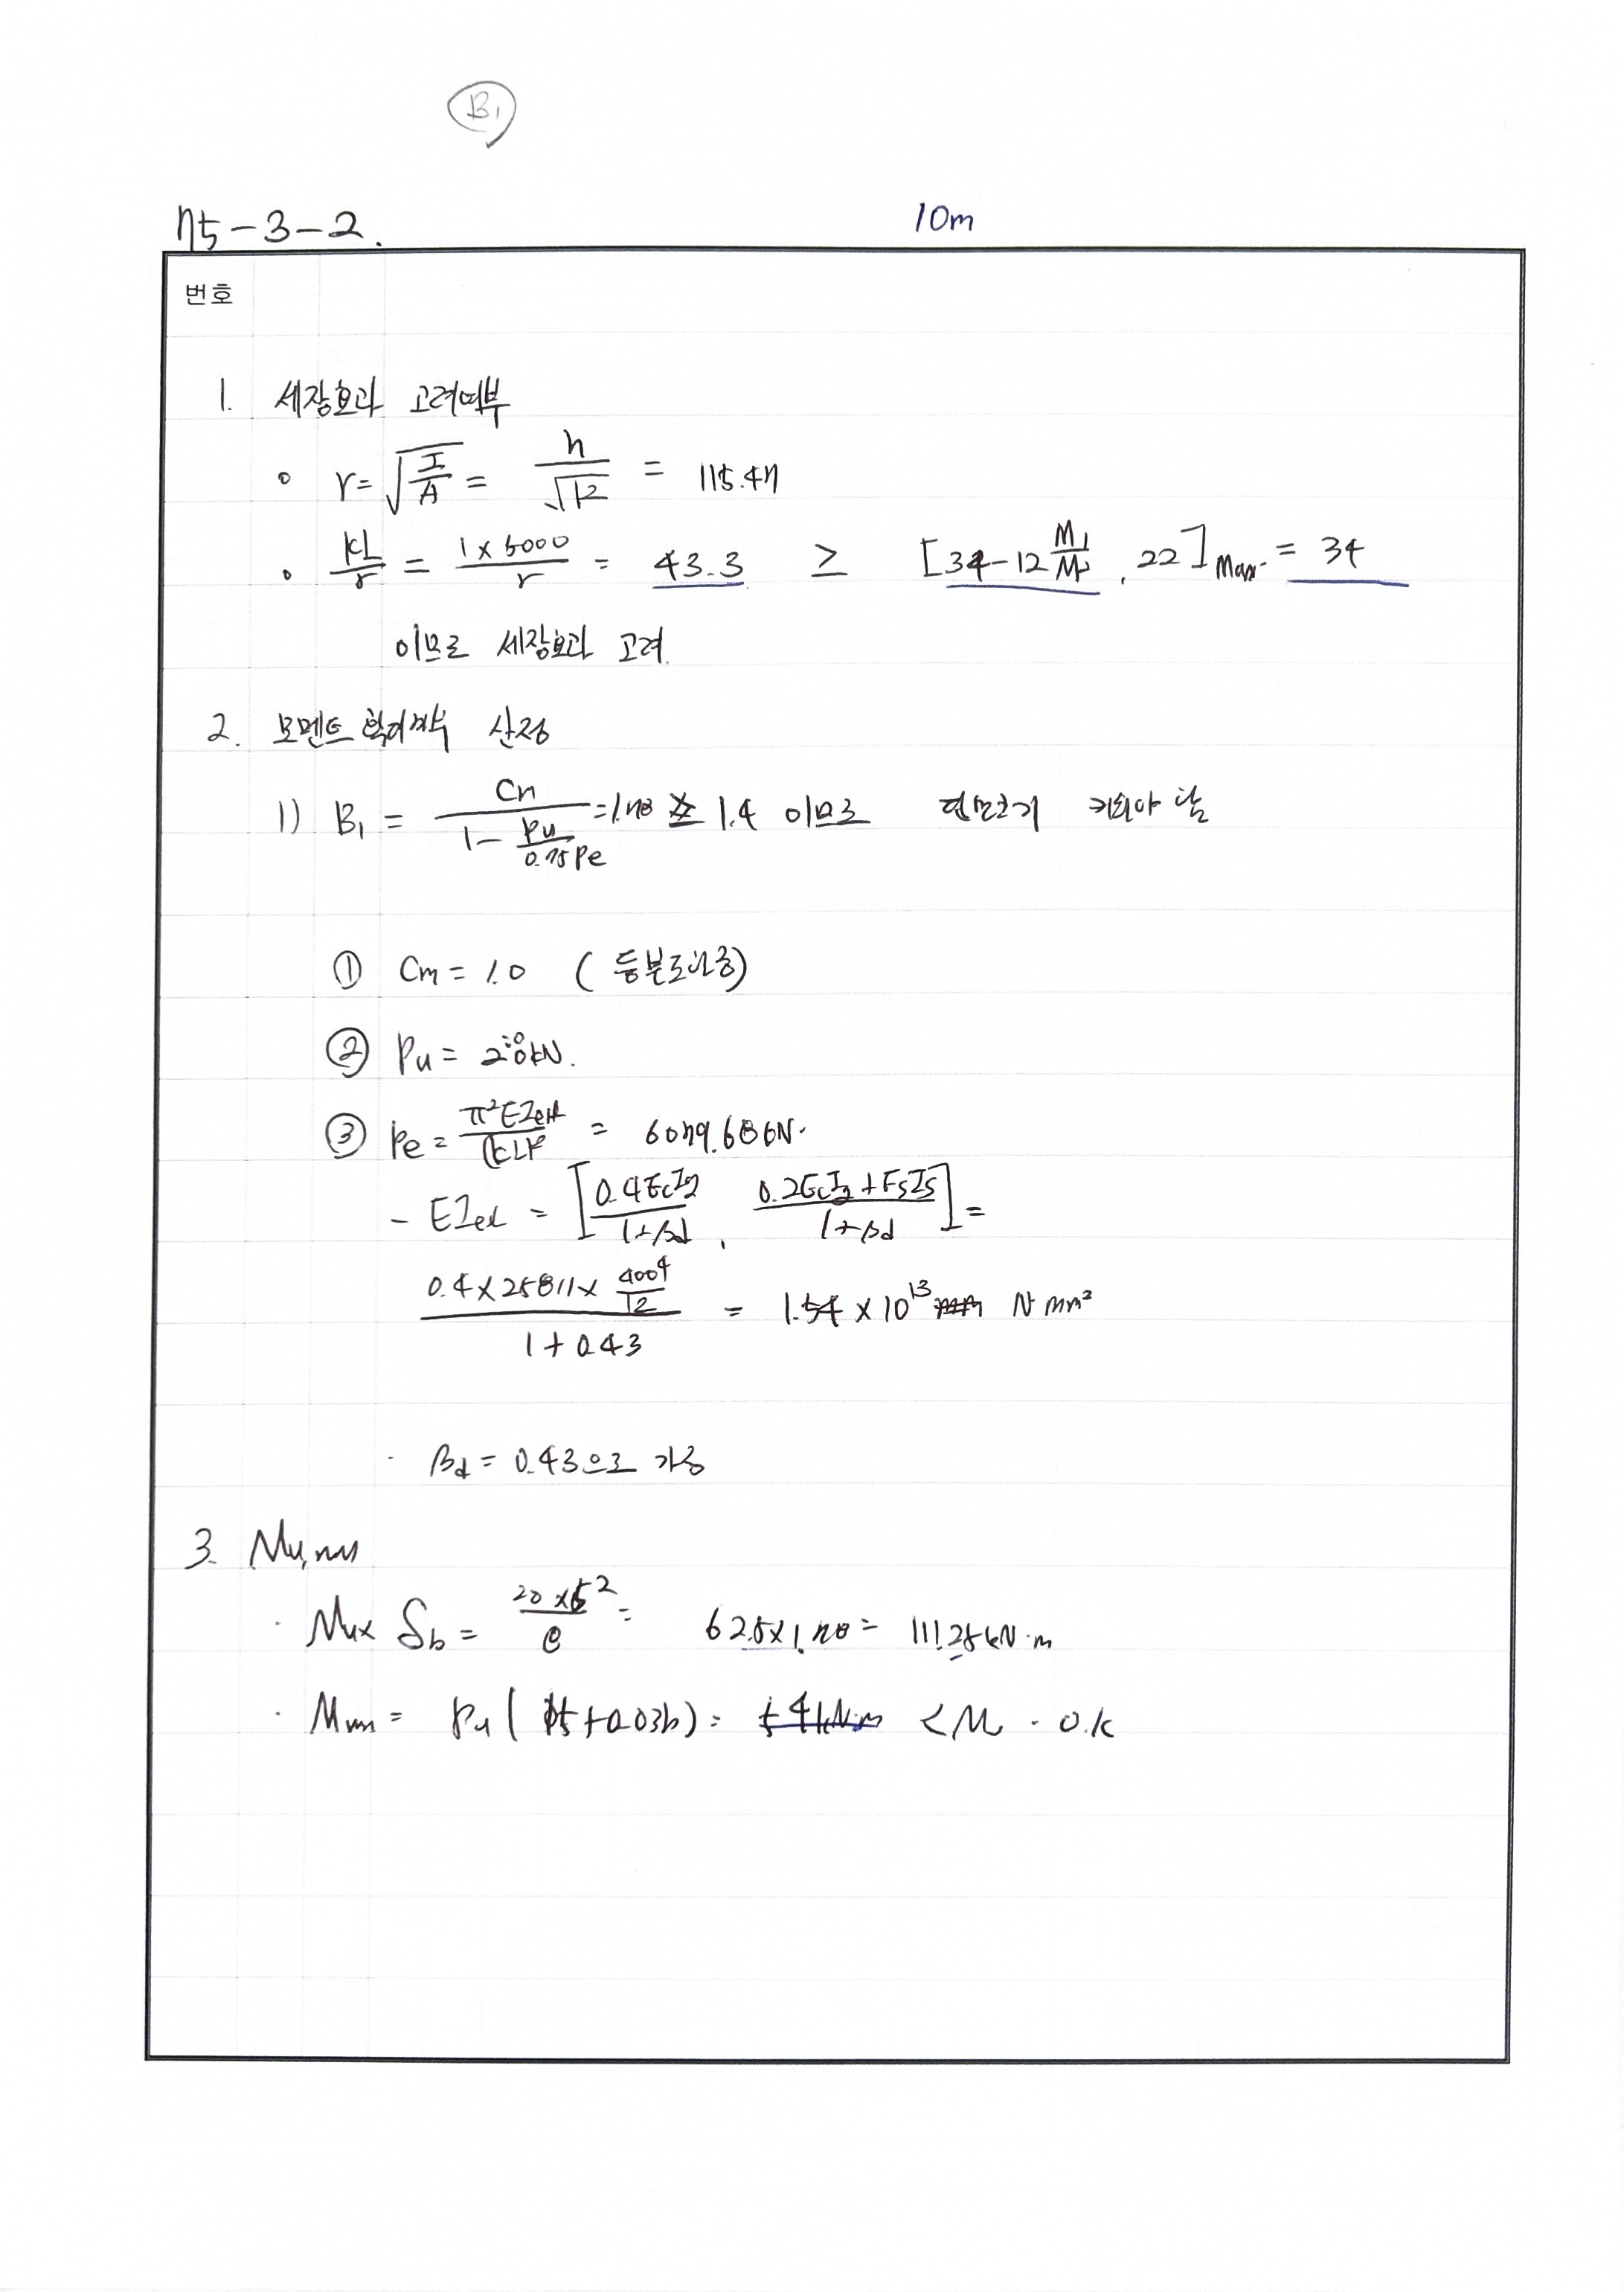 B₁
75-3-2.
10m
번호
1. 세장효과 고려여부
∘ r = √(I/A) = h/√12 = 115.47
∘ kL/r = 1×5000/r = 43.3 ≥ [34-12 M₁/M₂, 22]Max. = 34
이므로 세장효과 고려.
2. 모멘트확대계수 산정
1) B₁ = Cm/(1 - Pu/0.75Pe) = 1.78 ≰ 1.4 이므로 키워야 함
① Cm = 1.0 (등분포하중)
② Pu = kN.
③ Pe = π²EIeff/(kL)² = 6079.68kN.
- EIeff = [0.4EcIg/(1+βd), (0.2EcIg+EsIs)/(1+βd)] =
(0.4×25811×400⁴/12)/(1+0.43) = 1.54×10¹³ N mm²
· βd = 0.43으로 가정
3. Mu,
· Mu× δb = 20×5²/8 = 62.5×1.78 = 111.25kN·m
· Mmin = Pu(15+0.03h) = 54kN·m < M · O.K